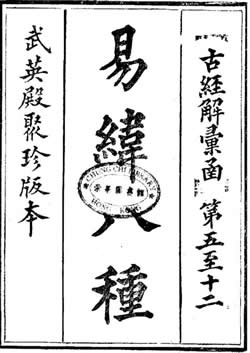 古經解彙函 第五至十二
易緯八種
武英殿聚珍版本
CHUNG CHI LIBRARY
崇基圖書館
HONG KONG